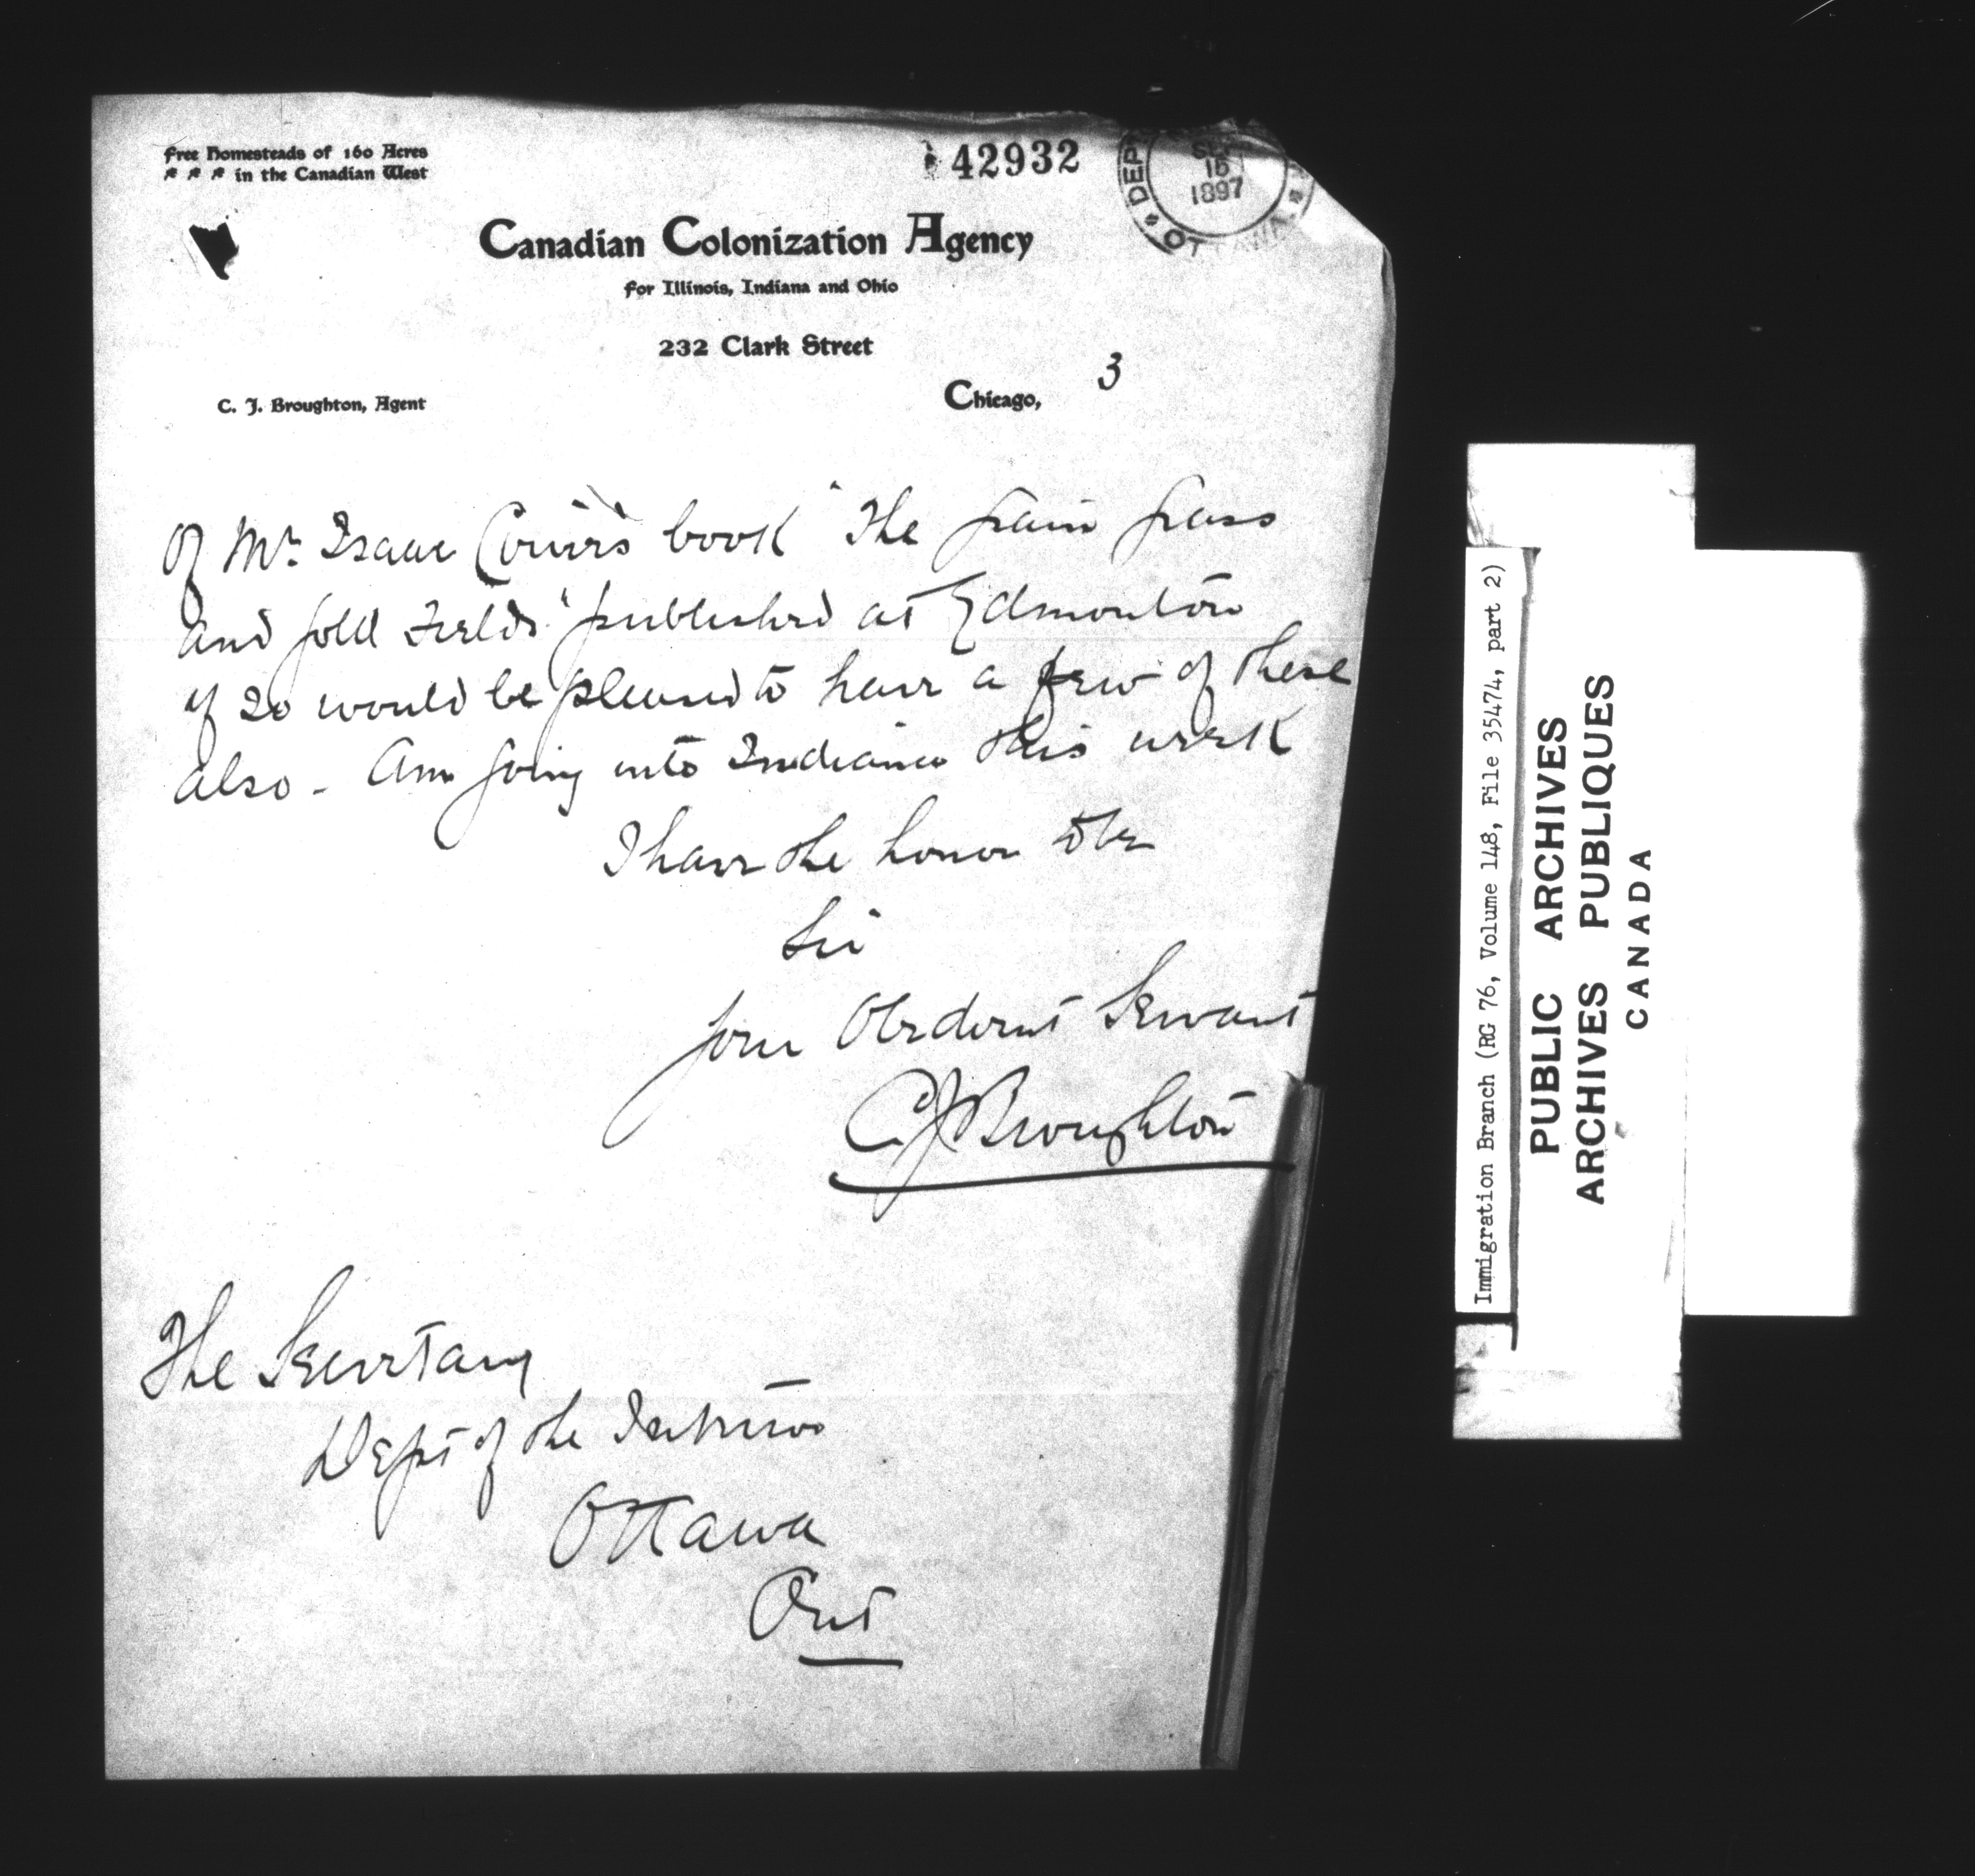 Free Homesteads of 160 Acres
in the Canadian West
42932
DEP
SEP
15
1897
OTTAWA
Canadian Colonization Agency
For Illinois, Indiana and Ohio
232 Clark Street
3
C. J. Broughton, Agent
Chicago,
of Mr. Isaac Cowie's book "The Grain Grass
and Gold Fields" published at Edmonton
if so would be pleased to have a few of these
also - Am going into Indiana this week
I have the honor to be
Sir
Your Obedient Servant
C J Broughton
The Secretary
Dept of the Interior
Ottawa
Ont
Immigration Branch (RG 76, Volume 148, File 35474, part 2)
PUBLIC ARCHIVES
ARCHIVES PUBLIQUES
CANADA